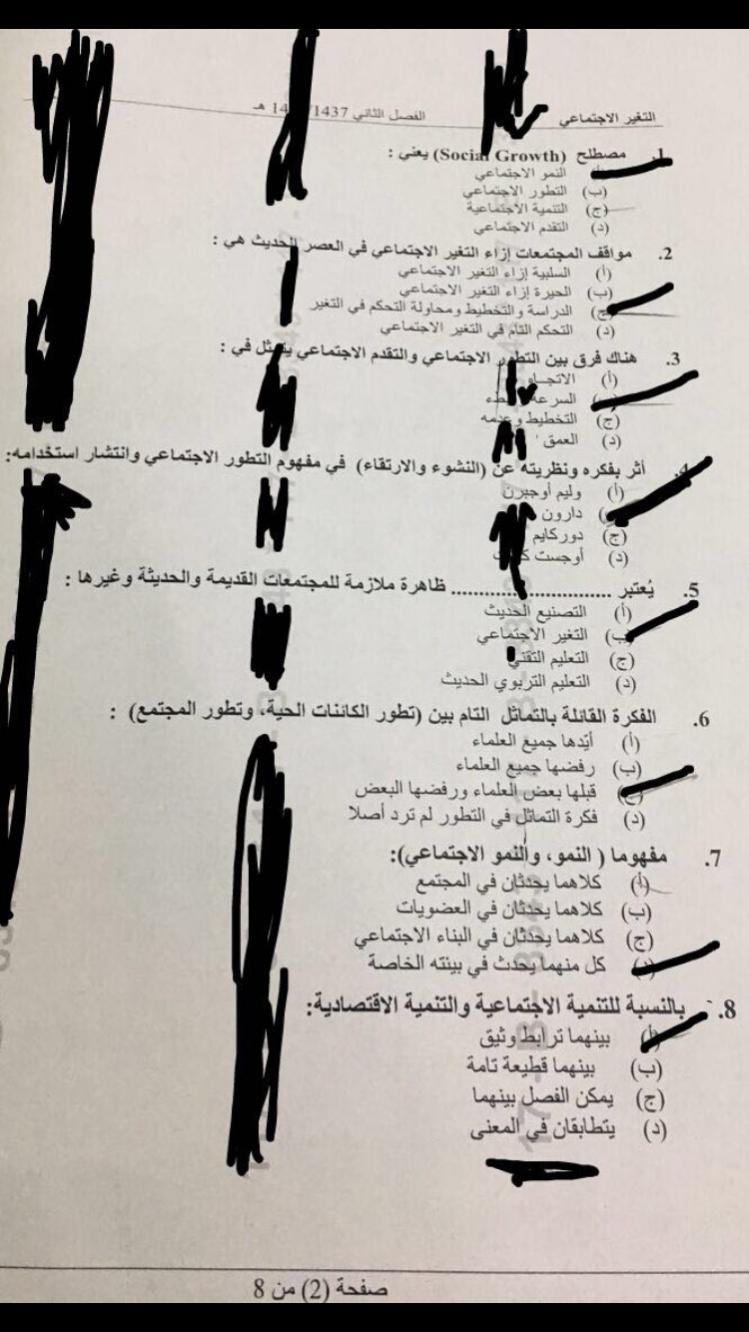 التغير الاجتماعي
الفصل الثاني 1437/ 14 هـ
1. مصطلح (Social Growth) يعني :
النمو الاجتماعي
(ب) التطور الاجتماعي
(ج) التنمية الاجتماعية
(د) التقدم الاجتماعي
2. مواقف المجتمعات إزاء التغير الاجتماعي في العصر الحديث هي :
(أ) السلبية إزاء التغير الاجتماعي
(ب) الحيرة إزاء التغير الاجتماعي
(ج) الدراسة والتخطيط ومحاولة التحكم في التغير
(د) التحكم التام في التغير الاجتماعي
3. هناك فرق بين التطور الاجتماعي والتقدم الاجتماعي يتمثل في :
(أ)
السرعة
(ج) التخطيط وعدمه
(د) العمق
4. أثر بفكره ونظريته عن (النشوء والارتقاء) في مفهوم التطور الاجتماعي وانتشار استخدامه:
(أ) وليم أوجبرن
دارون
(ج) دوركايم
(د) أوجست
5. يُعتبر .............................. ظاهرة ملازمة للمجتمعات القديمة والحديثة وغيرها :
(أ) التصنيع الحديث
(ب) التغير الاجتماعي
(ج) التعليم التقني
(د) التعليم التربوي الحديث
6. الفكرة القائلة بالتماثل التام بين (تطور الكائنات الحية، وتطور المجتمع) :
(أ) أيّدها جميع العلماء
(ب) رفضها جميع العلماء
(ج) قبلها بعض العلماء ورفضها البعض
(د) فكرة التماثل في التطور لم ترد أصلا
7. مفهوما ( النمو، والنمو الاجتماعي):
(أ) كلاهما يحدثان في المجتمع
(ب) كلاهما يحدثان في العضويات
(ج) كلاهما يحدثان في البناء الاجتماعي
(د) كل منهما يحدث في بيئته الخاصة
8. بالنسبة للتنمية الاجتماعية والتنمية الاقتصادية:
(أ) بينهما ترابط وثيق
(ب) بينهما قطيعة تامة
(ج) يمكن الفصل بينهما
(د) يتطابقان في المعنى
صفحة (2) من 8